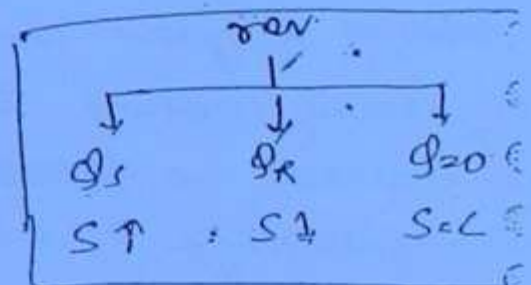 rev
Qs QR Q=0
S↑ S↓ S=C